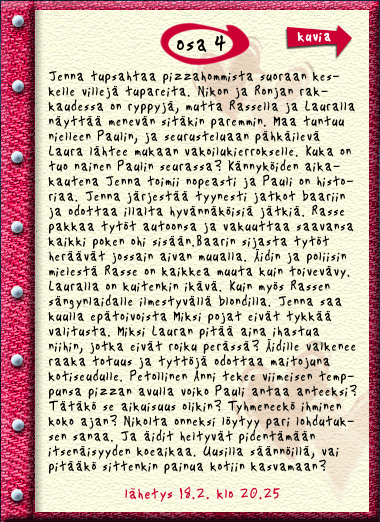 osa 4
kuvia
Jenna tupsahtaa pizzahommista suoraan kes-
kelle villejä tupareita. Nikon ja Ronjan rak-
kaudessa on ryppyjä, mutta Rassella ja Lauralla
näyttää menevän sitäkin paremmin. Maa tuntuu
nielleen Paulin, ja seurusteluaan pähkäilevä
Laura lähtee mukaan vakoilukierrokselle. Kuka on
tuo nainen Paulin seurassa? Kännyköiden aika-
kautena Jenna toimii nopeasti ja Pauli on histo-
riaa. Jenna järjestää tyynesti jatkot baariin
ja odottaa illalta hyvännäköisiä jätkiä. Rasse
pakkaa tytöt autoonsa ja vakuuttaa saavansa
kaikki poken ohi sisään.Baarin sijasta tytöt
heräävät jossain aivan muualla. Äidin ja poliisin
mielestä Rasse on kaikkea muuta kuin toivevävy.
Lauralla on kuitenkin ikävä. Kuin myös Rassen
sängynlaidalle ilmestyvällä blondilla. Jenna saa
kuulla epätoivoista Miksi pojat eivät tykkää
valitusta. Miksi Lauran pitää aina ihastua
niihin, jotka eivät roiku perässä? Äidille valkenee
raaka totuus ja tyttöjä odottaa maitojuna
kotiseudulle. Petollinen Anni tekee viimeisen temp-
punsa pizzan avulla voiko Pauli antaa anteeksi?
Tätäkö se aikuisuus olikin? Tyhmeneekö ihminen
koko ajan? Nikolta onneksi löytyy pari lohdutuk-
sen sanaa. Ja äidit heltyvät pidentämään
itsenäisyyden koeaikaa. Uusilla säännöillä, vai
pitääkö sittenkin painua kotiin kasvamaan?
lähetys 18.2. klo 20.25